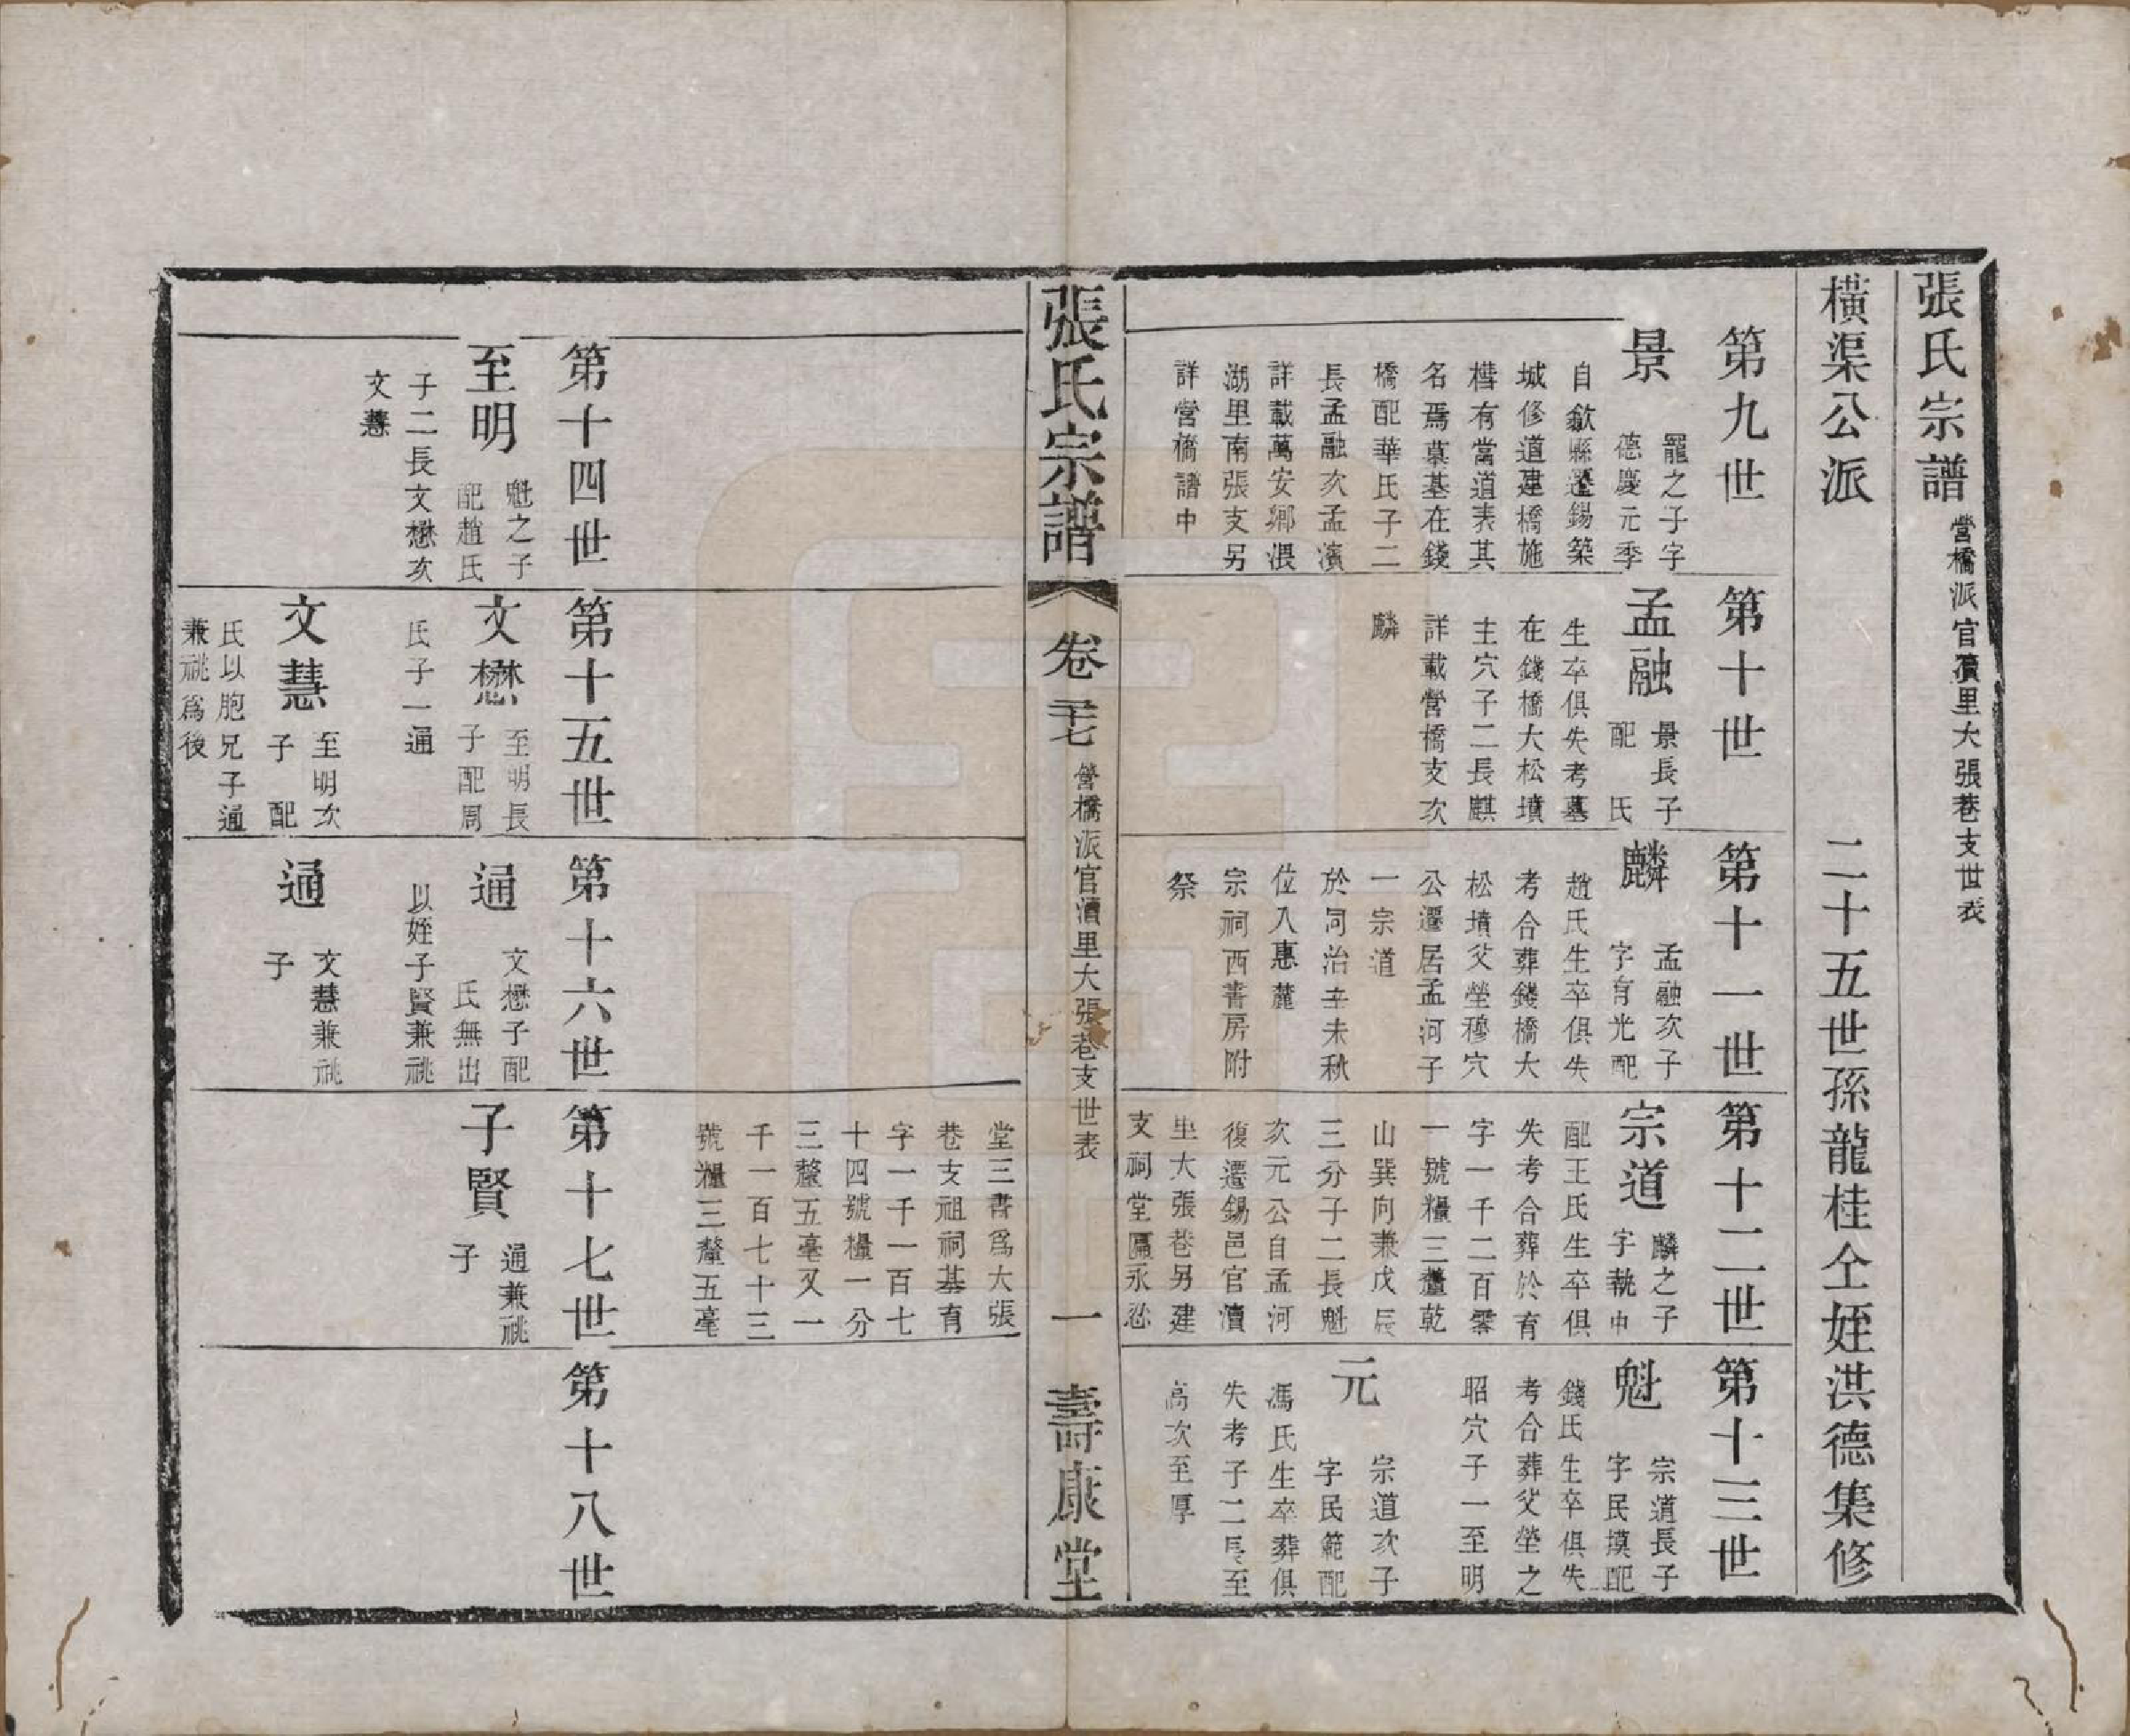 張氏宗譜 營橋派官瀆里大張巷支世表
橫渠公派 二十五世孫龍桂仝姪洪德集修
第九世
景
寵之子字
德慶元季
自歙縣遷錫築
城修道建橋施
槥有當道表其
名焉墓基在錢
橋配華氏子二
長孟融次孟濱
詳載萬安鄉渨
湖里南張支另
詳營橋譜中
第十世
孟融
景長子
配 氏
生卒俱失考墓
在錢橋大松墳
主穴子二長麒
詳載營橋支次
麟
第十一世
麟
孟融次子
字有光配
趙氏生卒俱失
考合葬錢橋大
松墳父塋穆穴
公遷居孟河子
一宗道
於同治辛未秋
位入惠麓
宗祠西書房附
祭
第十二世
宗道
麟之子
字執中
配王氏生卒俱
失考合葬於有
字一千二百零
一號糧三釐乾
山巽向兼戊辰
三分子二長魁
次元公自孟河
復遷錫邑官瀆
里大張巷另建
支祠堂匾永忍
第十三世
魁
宗道長子
字民摸配
錢氏生卒俱失
考合葬父塋之
昭穴子一至明
元
宗道次子
字民範配
馮氏生卒葬俱
失考子二長至
高次至厚
張氏宗譜 卷二十七 營橋派官瀆里大張巷支世表 一 壽康堂
堂三書爲大張
巷支祖祠基有
字一千一百七
十四號糧一分
三釐五毫又一
千一百七十三
號糧三釐五毫
第十四世
至明
魁之子
配趙氏
子二長文懋次
文慧
第十五世
文懋
至明長
子配周
氏子一通
文慧
至明次
子 配
氏以胞兄子通
兼祧爲後
第十六世
通
文懋子配
氏無出
以姪子賢兼祧
通
文慧兼祧
子
第十七世
子賢
通兼祧
子
第十八世